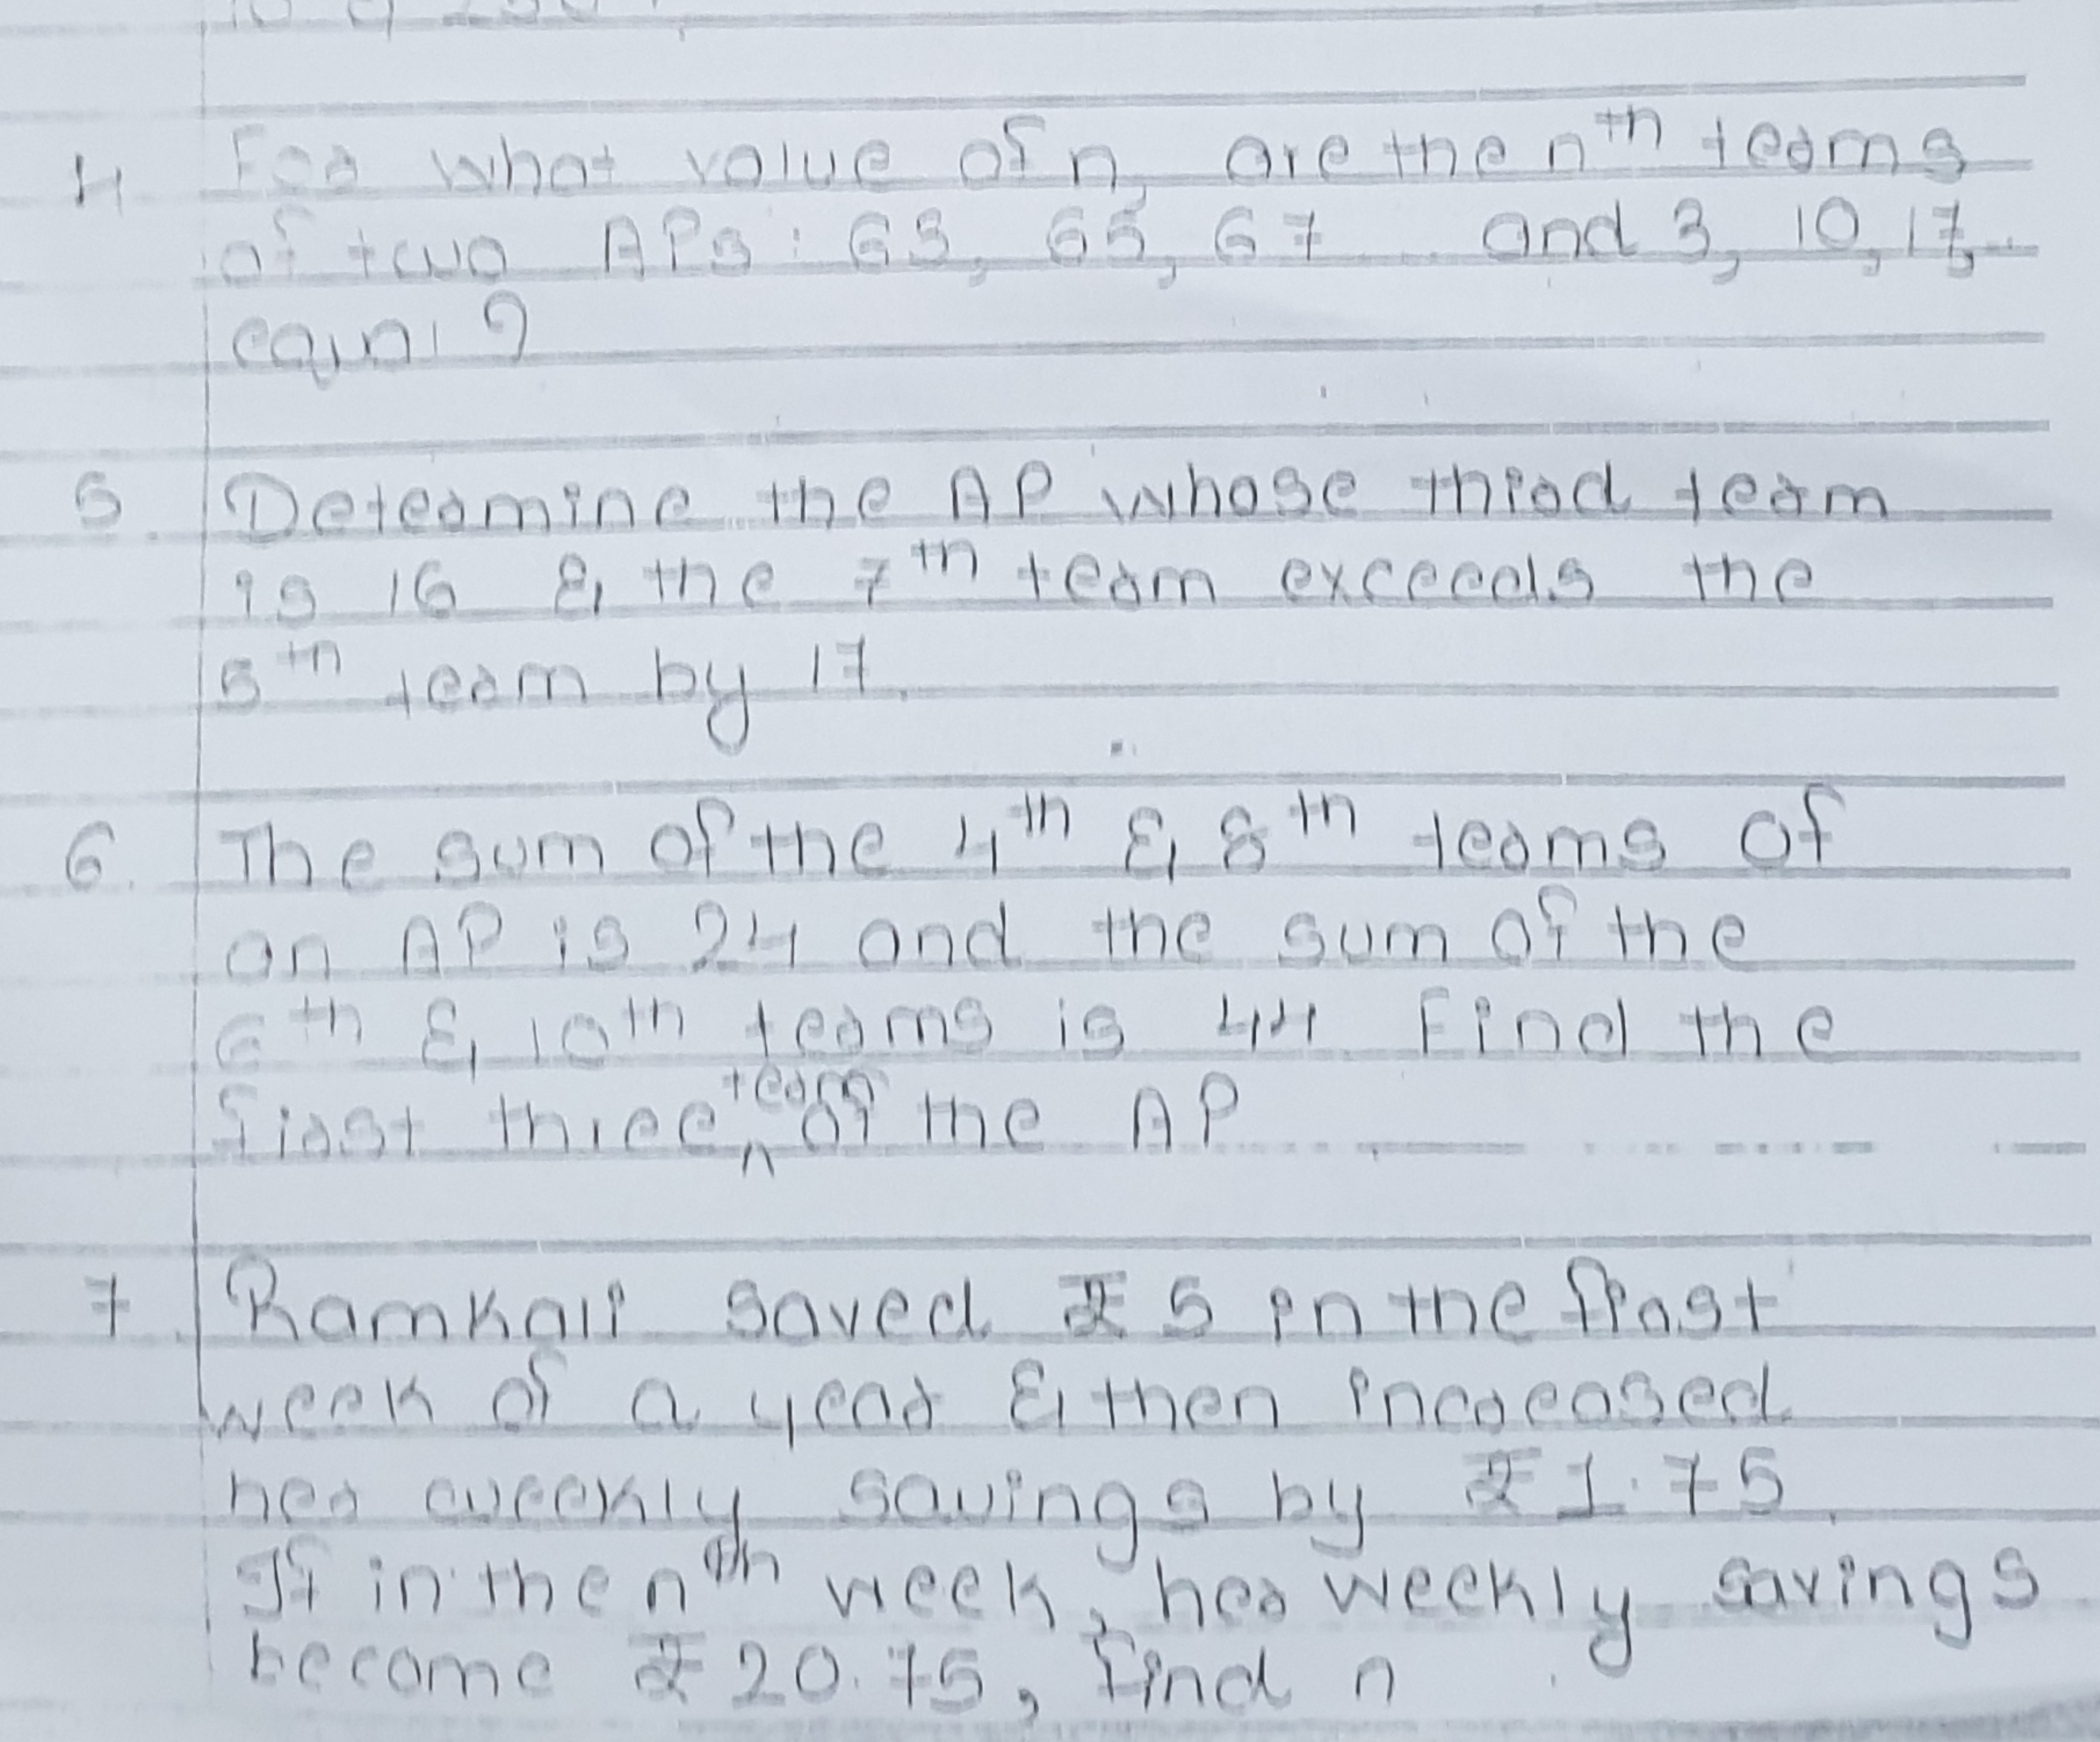 4. For what value of n, are the nth terms
of two APs: 63, 65, 67 ... and 3, 10, 17, ...
equal ?
5. Determine the AP whose third term
is 16 & the 7th term exceeds the
5th term by 17.
6. The sum of the 4th & 8th terms of
an AP is 24 and the sum of the
6th & 10th terms is 44. Find the
first three term of the AP
7. Ramkali saved ₹ 5 in the first
week of a year & then increased
her weekly savings by ₹ 1.75.
If in the nth week, her weekly savings
become ₹ 20.75, find n